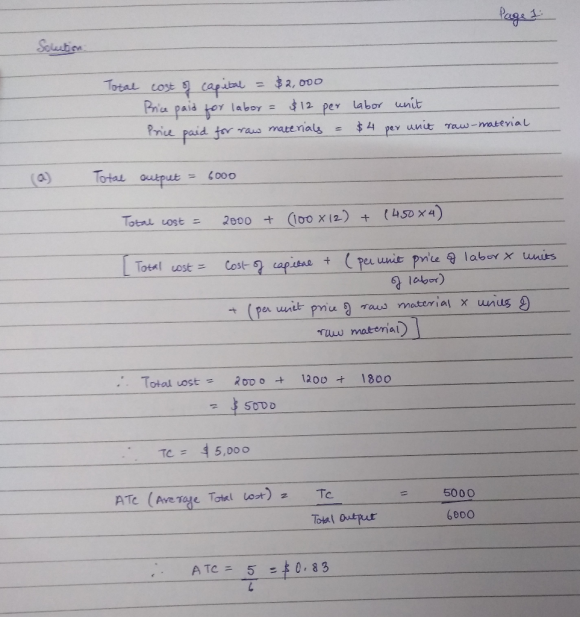 Page 1.
Solution
Total cost of capital = $2,000
Price paid for labor = $12 per labor unit
Price paid for raw materials = $4 per unit raw-material
(a) Total output = 6000
Total cost = 2000 + (100 × 12) + (450 × 4)
[ Total cost = Cost of capital + ( per unit price of labor × units
of labor)
+ (per unit price of raw material × units of
raw material) ]
∴ Total cost = 2000 + 1200 + 1800
= $5000
∴ TC = $5,000
ATC (Average Total Cost) = TC = 5000
Total Output 6000
∴ ATC = 5 = $0.83
6